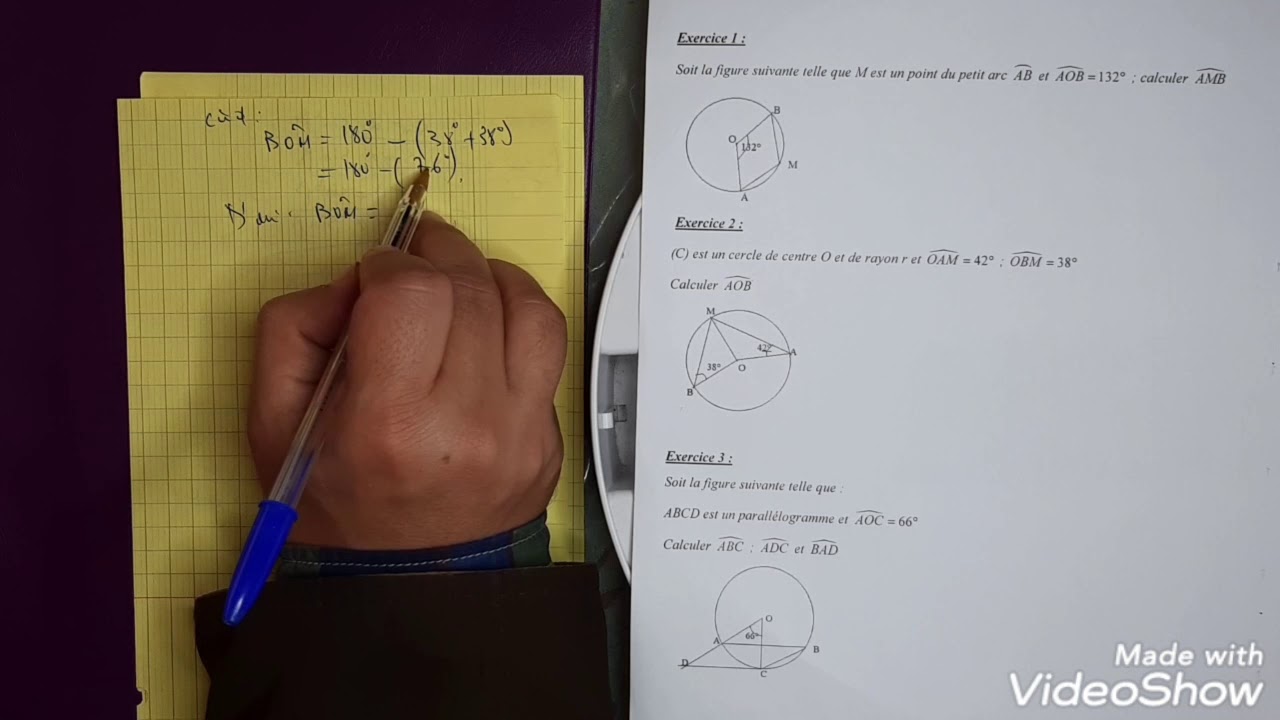 c'àd :
BÔM = 180° - (38° + 38°)
= 180° - (76°).
D'où : BÔM =
Exercice 1 :
Soit la figure suivante telle que M est un point du petit arc AB et AOB = 132° ; calculer AMB
B
O
132°
M
A
Exercice 2 :
(C) est un cercle de centre O et de rayon r et OAM = 42° ; OBM = 38°
Calculer AOB
M
42°
A
38°
O
B
Exercice 3 :
Soit la figure suivante telle que :
ABCD est un parallélogramme et AOC = 66°
Calculer ABC ; ADC et BAD
O
66°
A
B
D
C
Made with
VideoShow